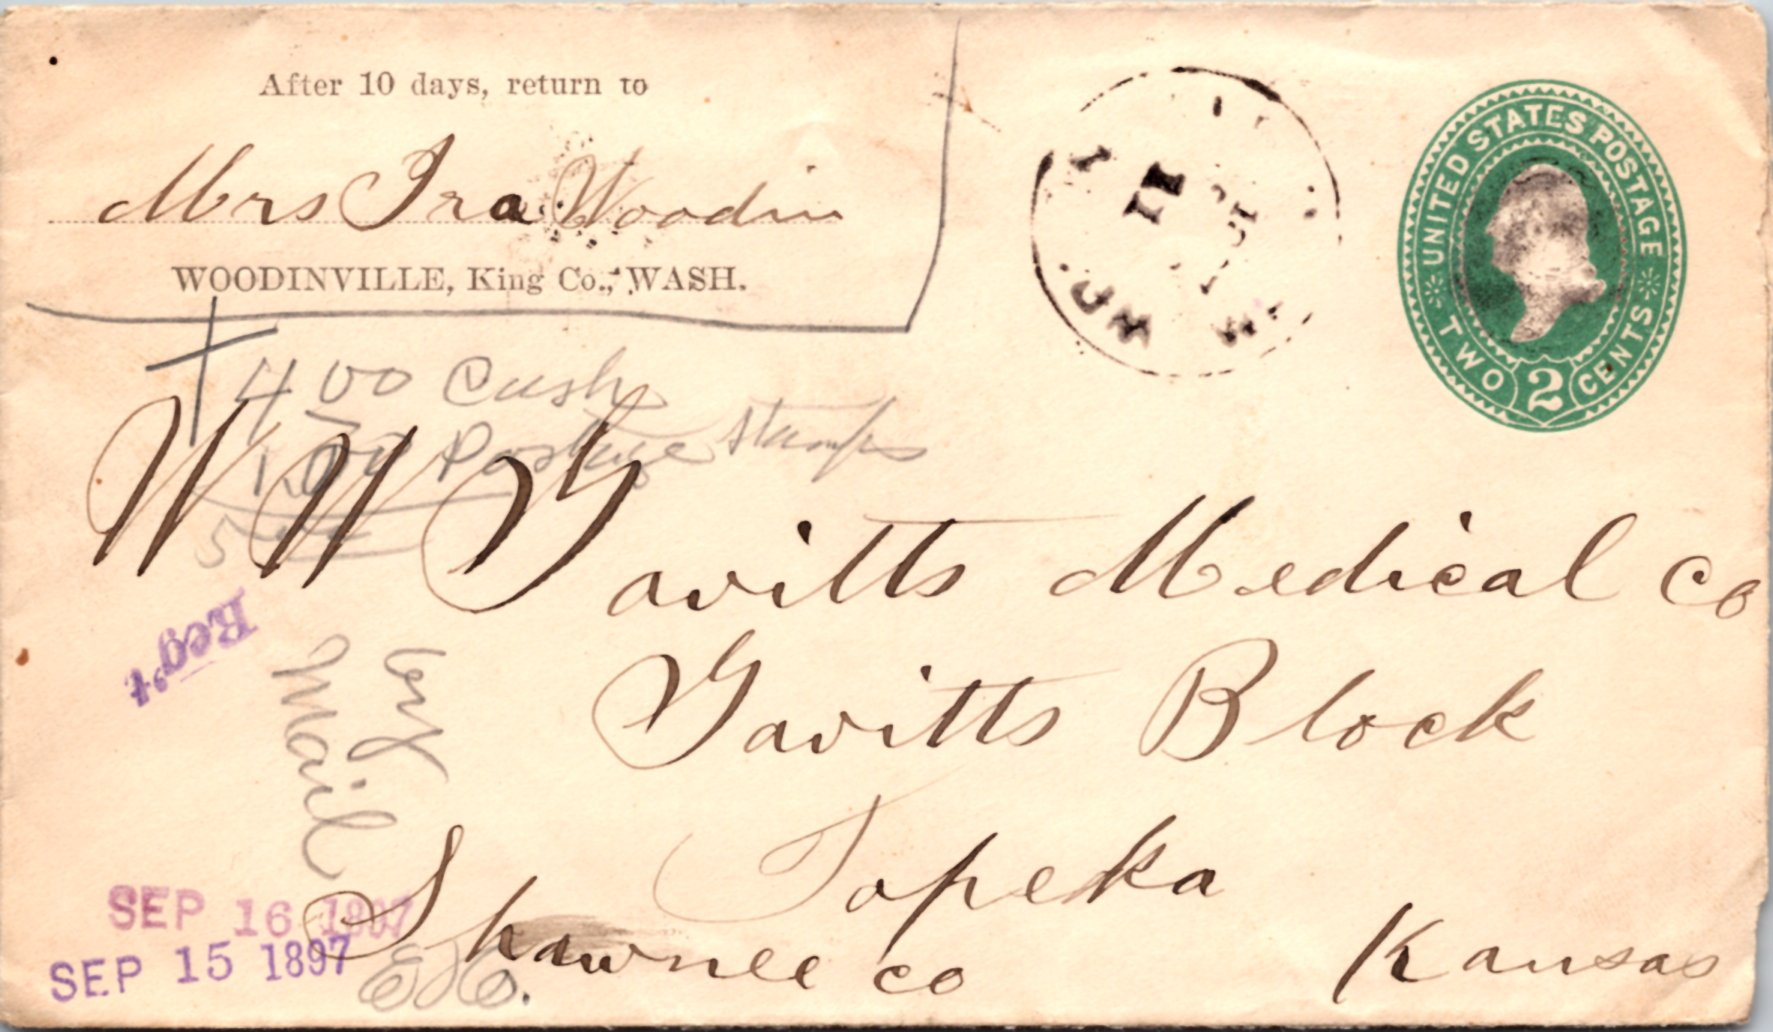 After 10 days, return to
Mrs Ira Woodin
WOODINVILLE, King Co., WASH.
UNITED STATES POSTAGE
TWO 2 CENTS
11
4 00 Cash
1.00 Postage Stamps
5
W W Gavitts Medical Co
Gavitts Block
Topeka
Shawnee co
Kansas
Reg't
by
Mail
SEP 16 1897
SEP 15 1897